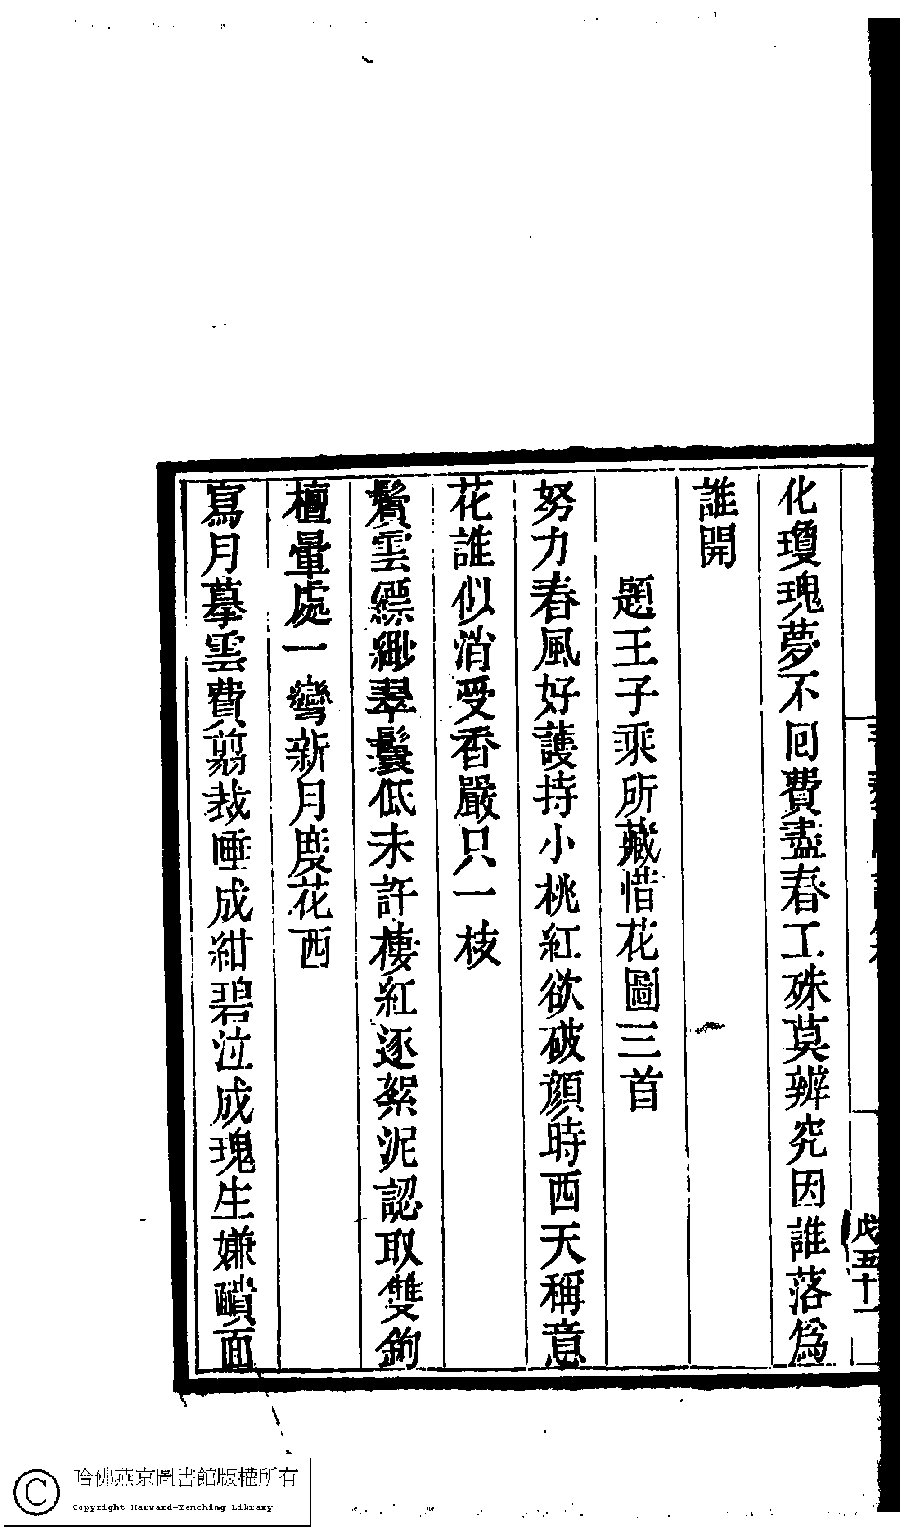 化瓊瑰夢不囘費盡春工硃莫辨究因誰落爲
誰開
題王子乘所藏惜花圖三首
努力春風好護持小桃紅欲破顔時西天稱意
花誰似消受香嚴只一枝
鬢雲縹緲翠鬟低未許棲紅逐絮泥認取雙鉤
檀暈處一彎新月慶花西
寫月摹雲費翦裁唾成紺碧泣成瑰生嫌靧面
戊五十一
哈佛燕京圖書館版權所有
Copyright Harvard-Yenching Library